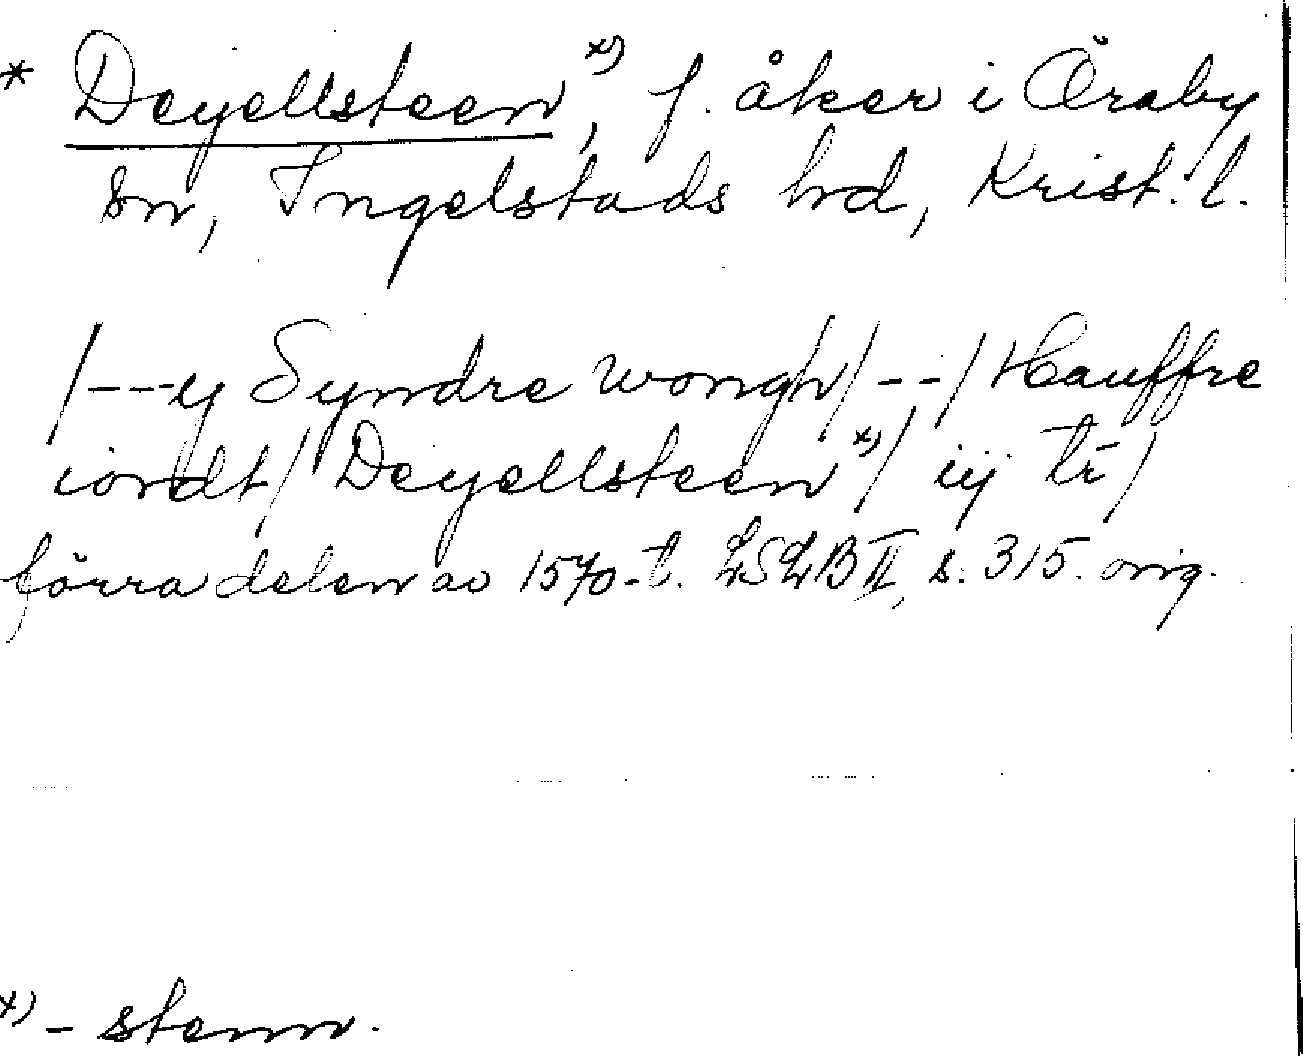 * Deyellsteen x), f. åker i Öraby
sn, Ingelstads hd, Krist. l.
/--y Syndre wongh/--/Hauffre
iordt/ Deyellsteen x)/ iij tr̄/
förra delen av 1570-t. LSLB II, s. 315. orig.
x) - stenn.